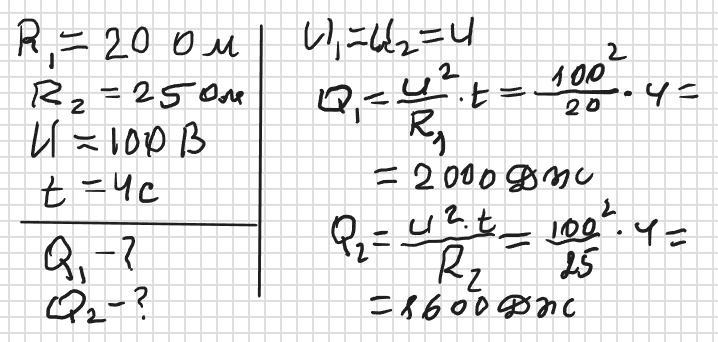 R₁ = 20 Ом
R₂ = 25 Ом
U = 100 В
t = 4 с
Q₁ - ?
Q₂ - ?
U₁ = U₂ = U
Q₁ = U²/R₁ · t = 100²/20 · 4 =
= 2000 Дж
Q₂ = U² · t/R₂ = 100²/25 · 4 =
= 1600 Дж